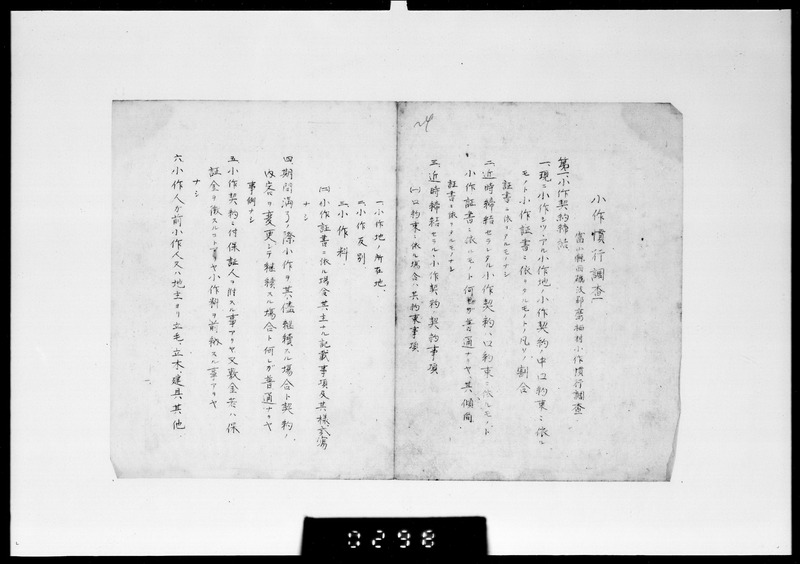 24
小作慣行調査
富山縣西礪波郡鷹栖村小作慣行調査
第一、小作契約締結
一、現ニ小作シツヽアル小作地ノ小作契約ノ中口約束ニ依ル
モノト小作証書ニ依リタルモノトノ凡ソノ割合
証書ニ依リタルモノナシ
二、近時締結セラレタル小作契約ハ口約束ニ依ルモノト
小作証書ニ依ルモノト何レガ普通ナリヤ、其傾向
証書ニ依リタルモノナシ
三、近時締結セラルヽ小作契約ノ契約事項
(一)口約束ニ依ル場合ハ其約束事項
一、小作地ノ所在地、
二、小作反別、
三、小作料、
(二)小作証書ニ依ル場合其主ナル記載事項及其様式寫
ナシ
四、期間満了ノ際小作ヲ其儘継續スル場合ト契約ノ
内容ヲ変更シテ継續スル場合ト何レガ普通ナリヤ
事例ナシ
五、小作契約ニ付保証人ヲ附スル事アリヤ又敷金若ハ保
証金ヲ徴スルコト事ヤ小作料ヲ前納スル事アリヤ
ナシ
六、小作人ガ前小作人又ハ地主ヨリ立毛、立木、建具、其他
0298